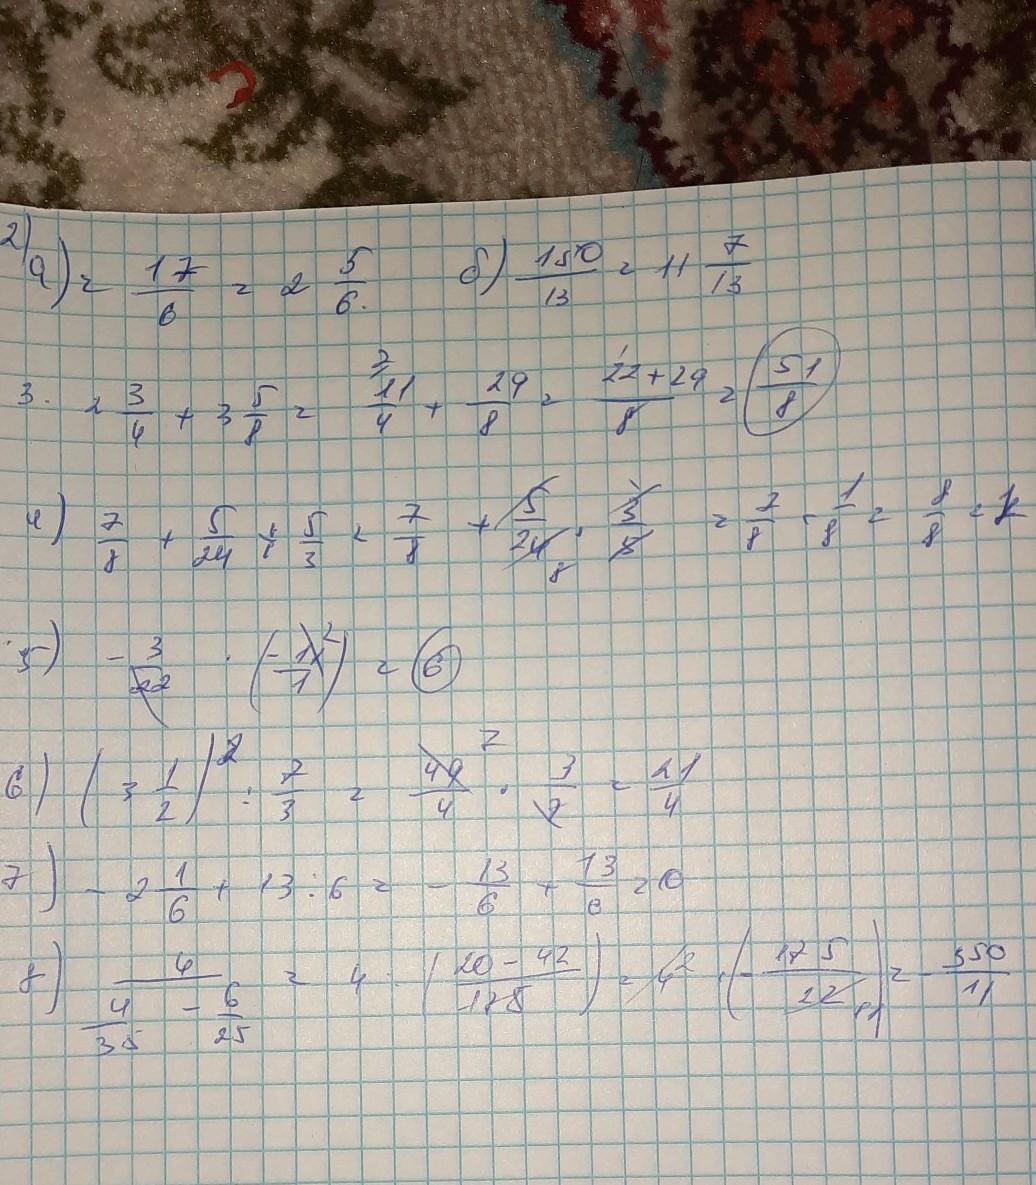 2) а) = 17/6 = 2 5/6. б) 150/13 = 11 7/13
3. 2 3/4 + 3 5/8 = 11/4 + 29/8 = 22+29/8 = 51/8
4) 7/8 + 5/24 ÷ 5/3 = 7/8 + 5/24 · 3/5 = 7/8 + 1/8 = 8/8 = 1
5) - 3/22 · = 6
6) (3 1/2)² : 7/3 = 49/4 · 3/7 = 21/4
7) - 2 1/6 + 13 : 6 = - 13/6 + 13/6 = 0
8) 4/(4/35 - 6/25) = 4 · (20-42/175) = 4 · (- 175/22) = - 350/11